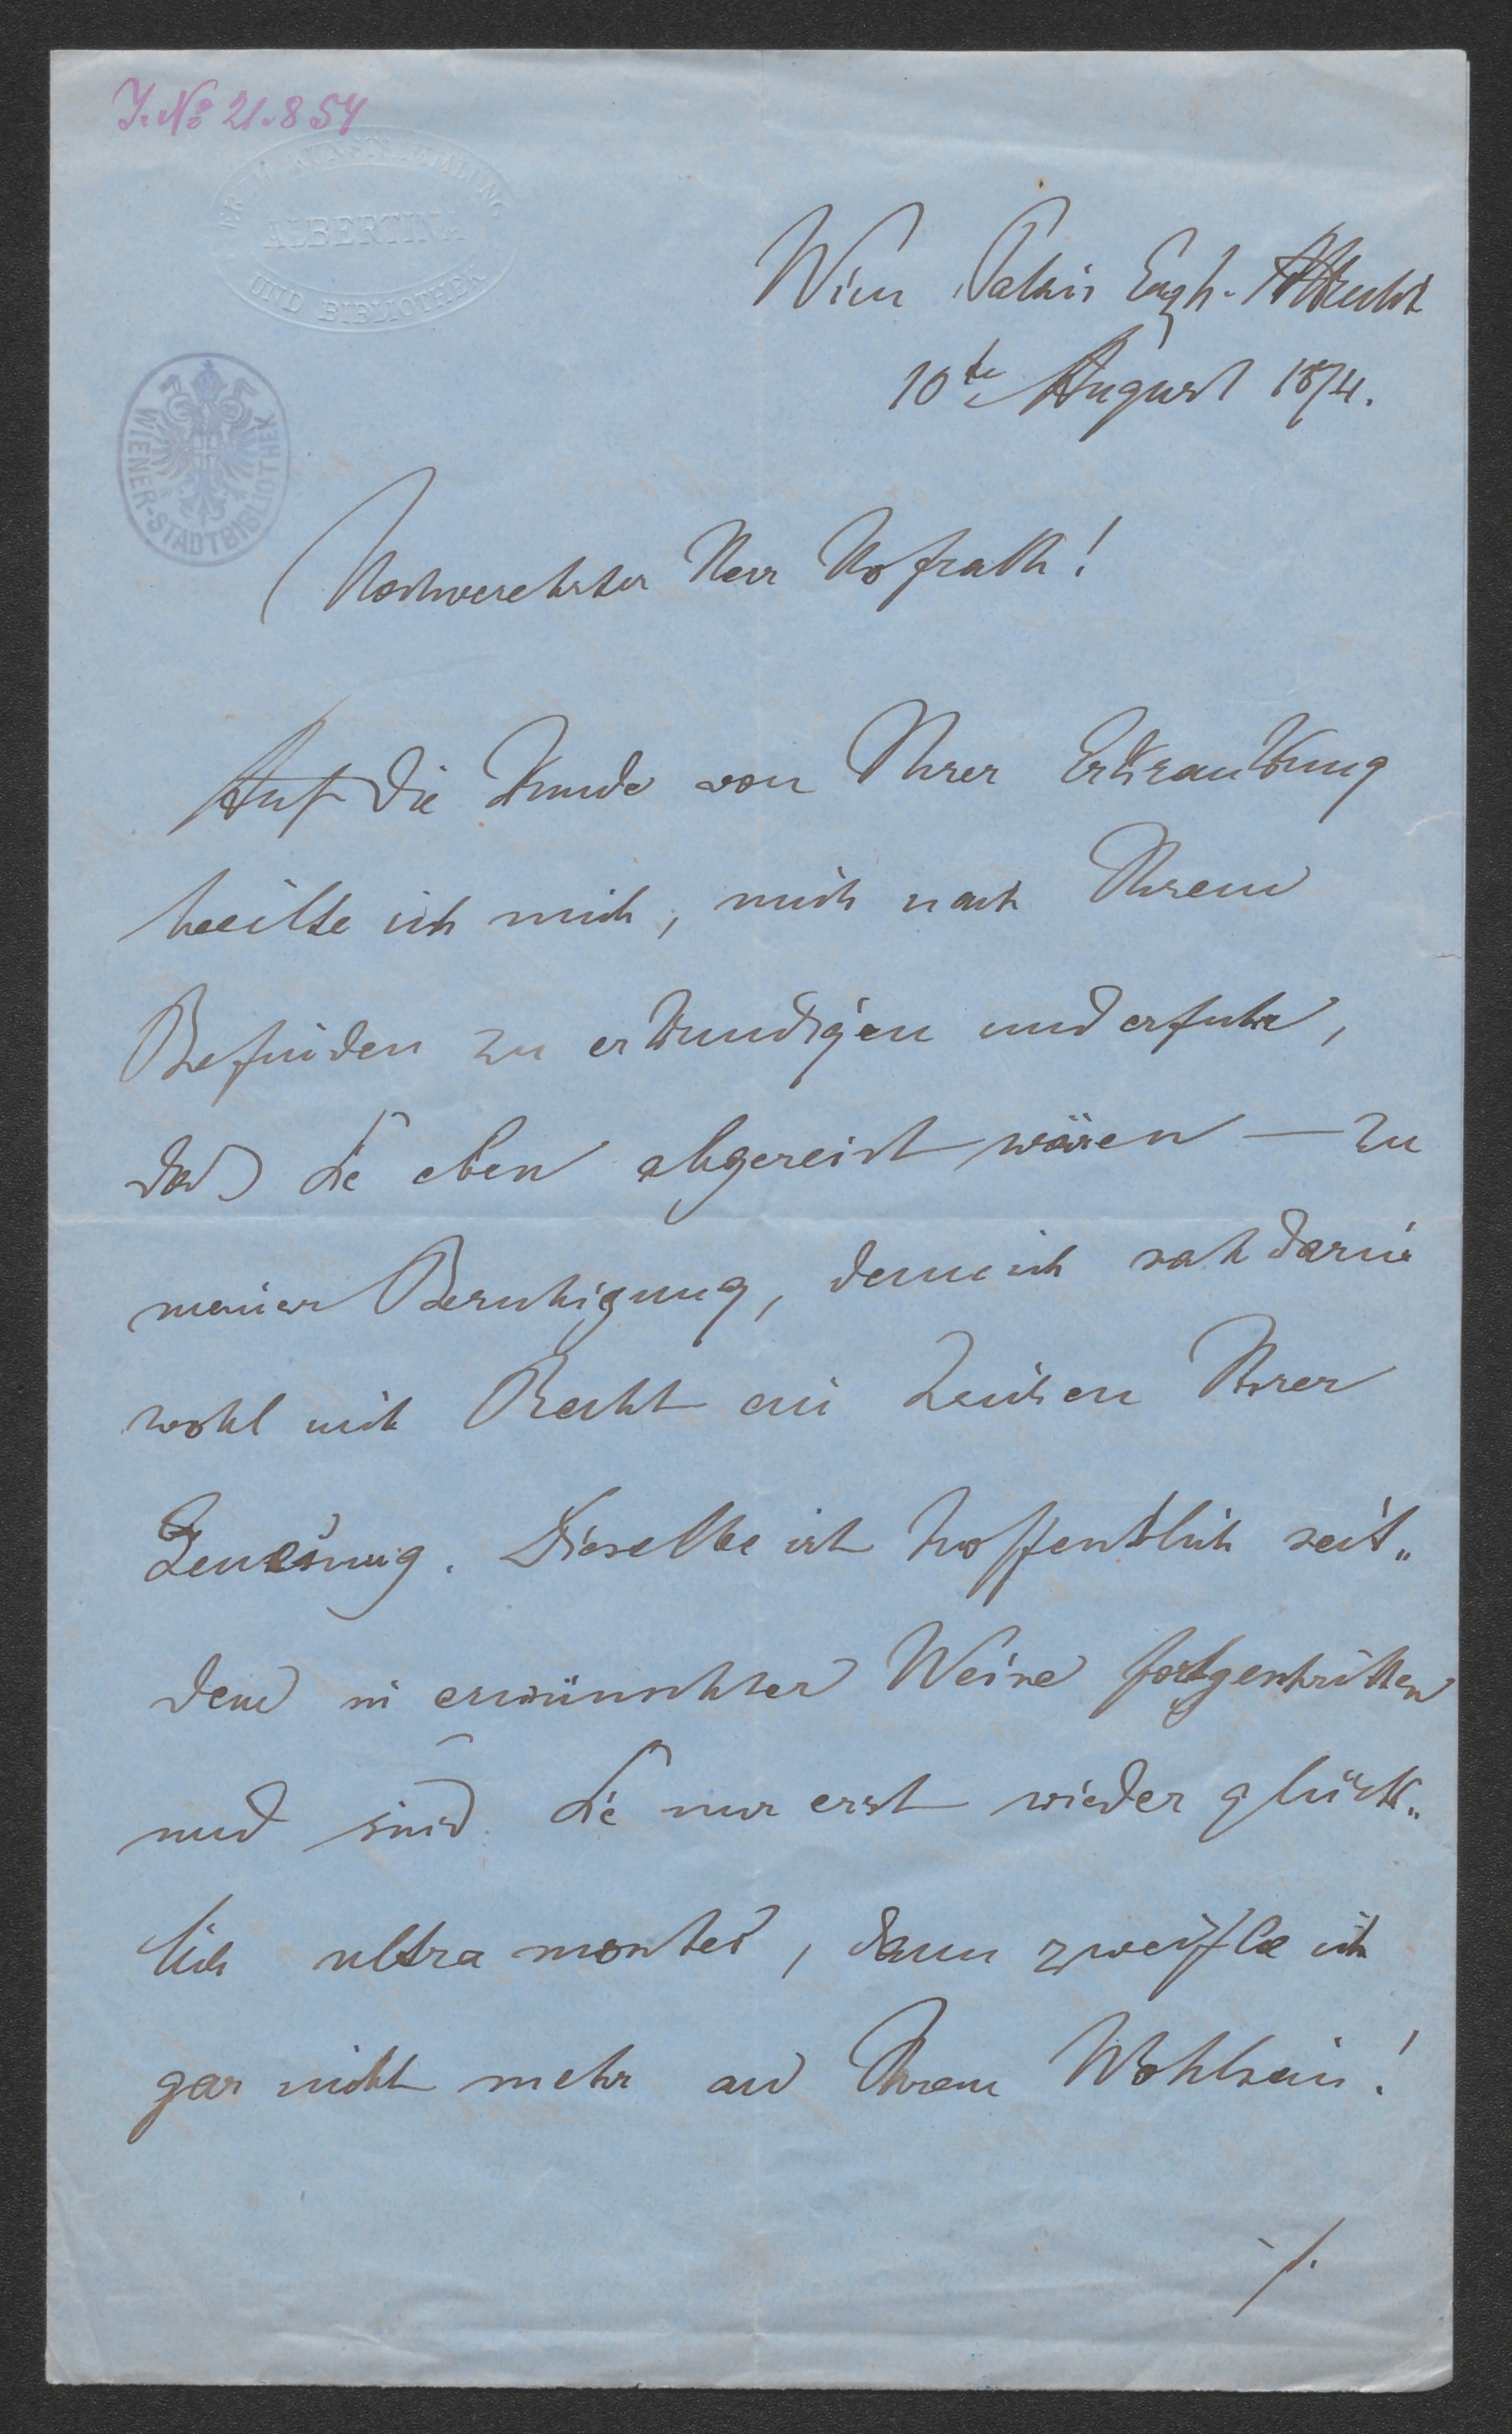 J. No 21.854
ERZH. KUNSTSAMMLUNG
ALBERTINA
UND BIBLIOTHEK
WIENER-STADTBIBLIOTHEK
Wien Palais Erzh. Albrecht
10te August 1874.
Hochverehrter Herr Hofrath!
Auf die Kunde von Ihrer Erkrankung
beeilte ich mich, mich nach Ihrem
Befinden zu erkundigen und erfuhr,
daß Sie eben abgereist wären — zu
meiner Beruhigung, denn ich sah darin
wohl mit Recht ein Zeichen Ihrer
Genesung. Dieselbe ist hoffentlich seit„
dem in erwünschter Weise fortgeschritten
und sind Sie nur erst wieder glück„
lich ultra montes, dann zweifle ich
gar nicht mehr an Ihrem Wohlsein!
./.